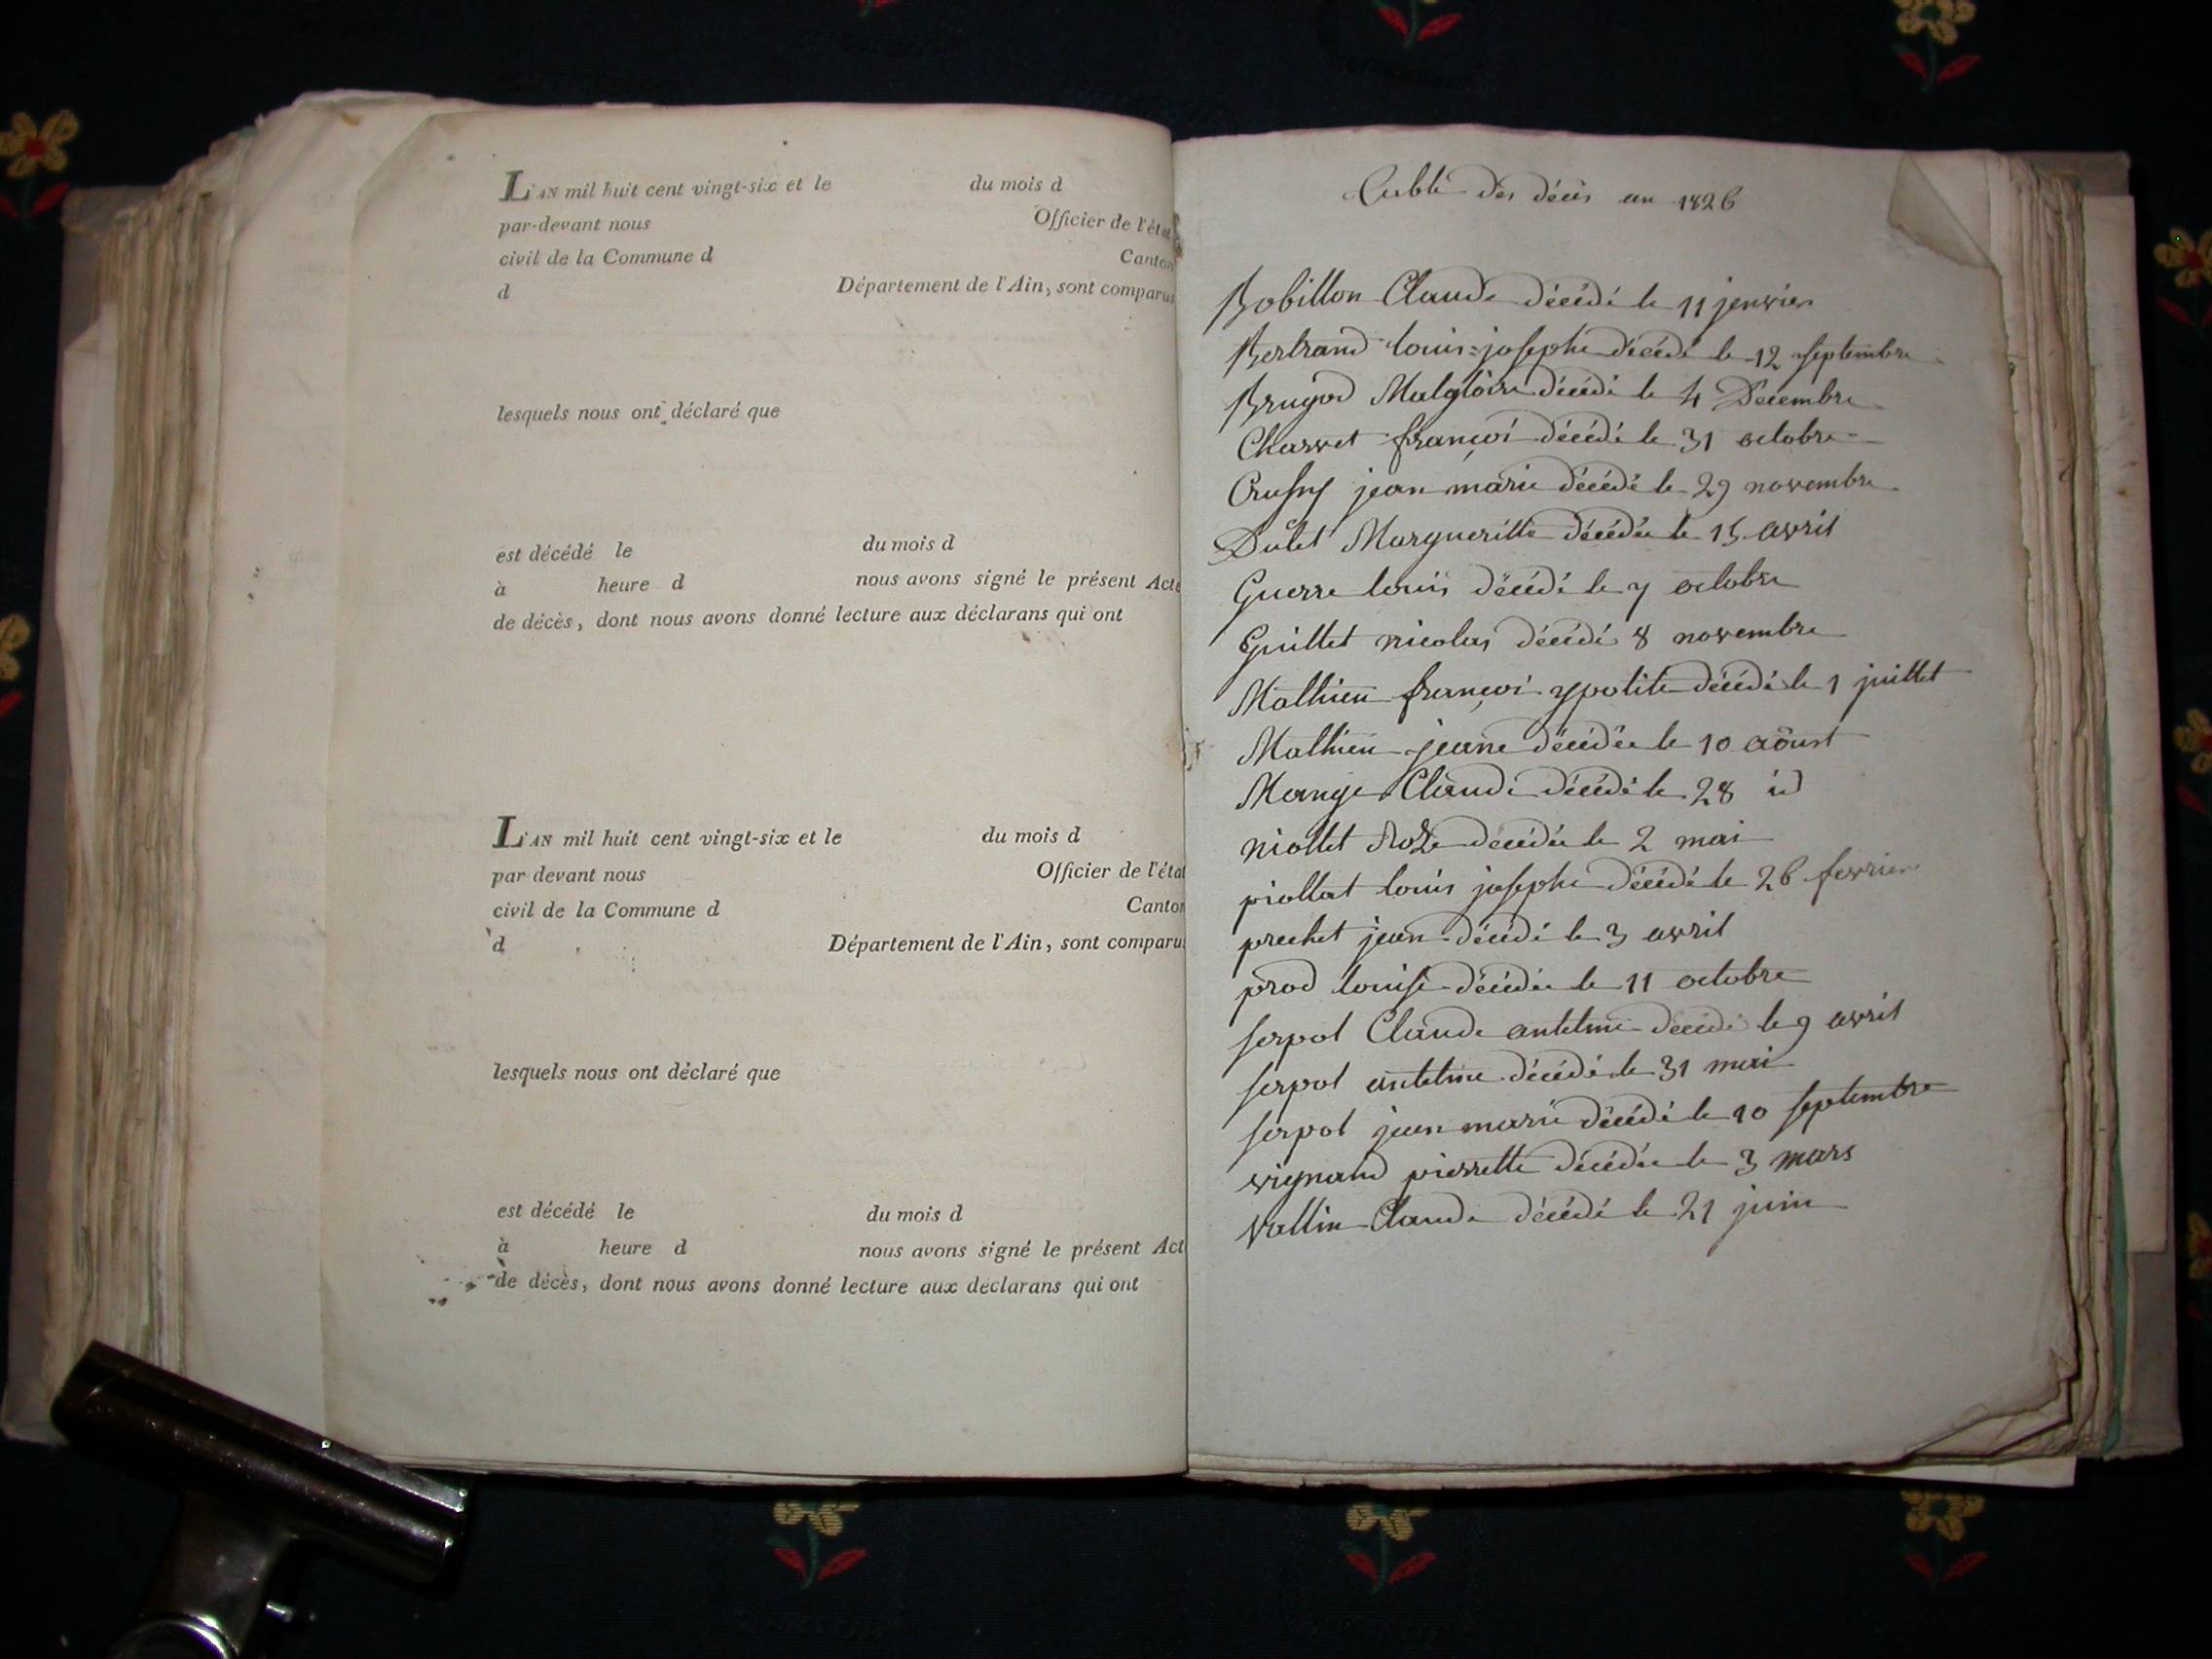 L'AN mil huit cent vingt-six et le du mois d
par-devant nous Officier de l'état
civil de la Commune d Canton
d Département de l'Ain, sont comparus
lesquels nous ont déclaré que
est décédé le du mois d
à heure d nous avons signé le présent Acte
de décès, dont nous avons donné lecture aux déclarans qui ont
L'AN mil huit cent vingt-six et le du mois d
par devant nous Officier de l'état
civil de la Commune d Canton
d Département de l'Ain, sont comparus
lesquels nous ont déclaré que
est décédé le du mois d
à heure d nous avons signé le présent Act
de décès, dont nous avons donné lecture aux declarans qui ont
Table des décès an 1826
Bobillon Claude décédé le 11 jenvier
Bertrand louis=josephe décédé le 12 septembre
Brugod Malgloire décédé le 4 Decembre
Charvet françoi décédé le 31 octobre
jean marie décédé le 29 novembre
Dulet Margueritte décédée le 15 avril
Guerre louis décédé le 7 octobre
Guillet nicolas décédé 8 novembre
Mathieu françoi ypolite décédé le 1 juillet
Mathieu jeane décédée le 10 aôust
Mange Claude décédé le 28 id
niollet Roze décédée le 2 mai
piollat louis josephe décédé le 26 fevrier
prechet jean décédé le 3 avril
prod louise décédée le 11 octobre
serpol Claude antelme décédé le 9 avril
serpol antelme décédé le 31 mai
serpol jean marie décédé le 10 septembre
vignand pierrette décédée le 3 mars
Vallin Claude décédé le 21 juin